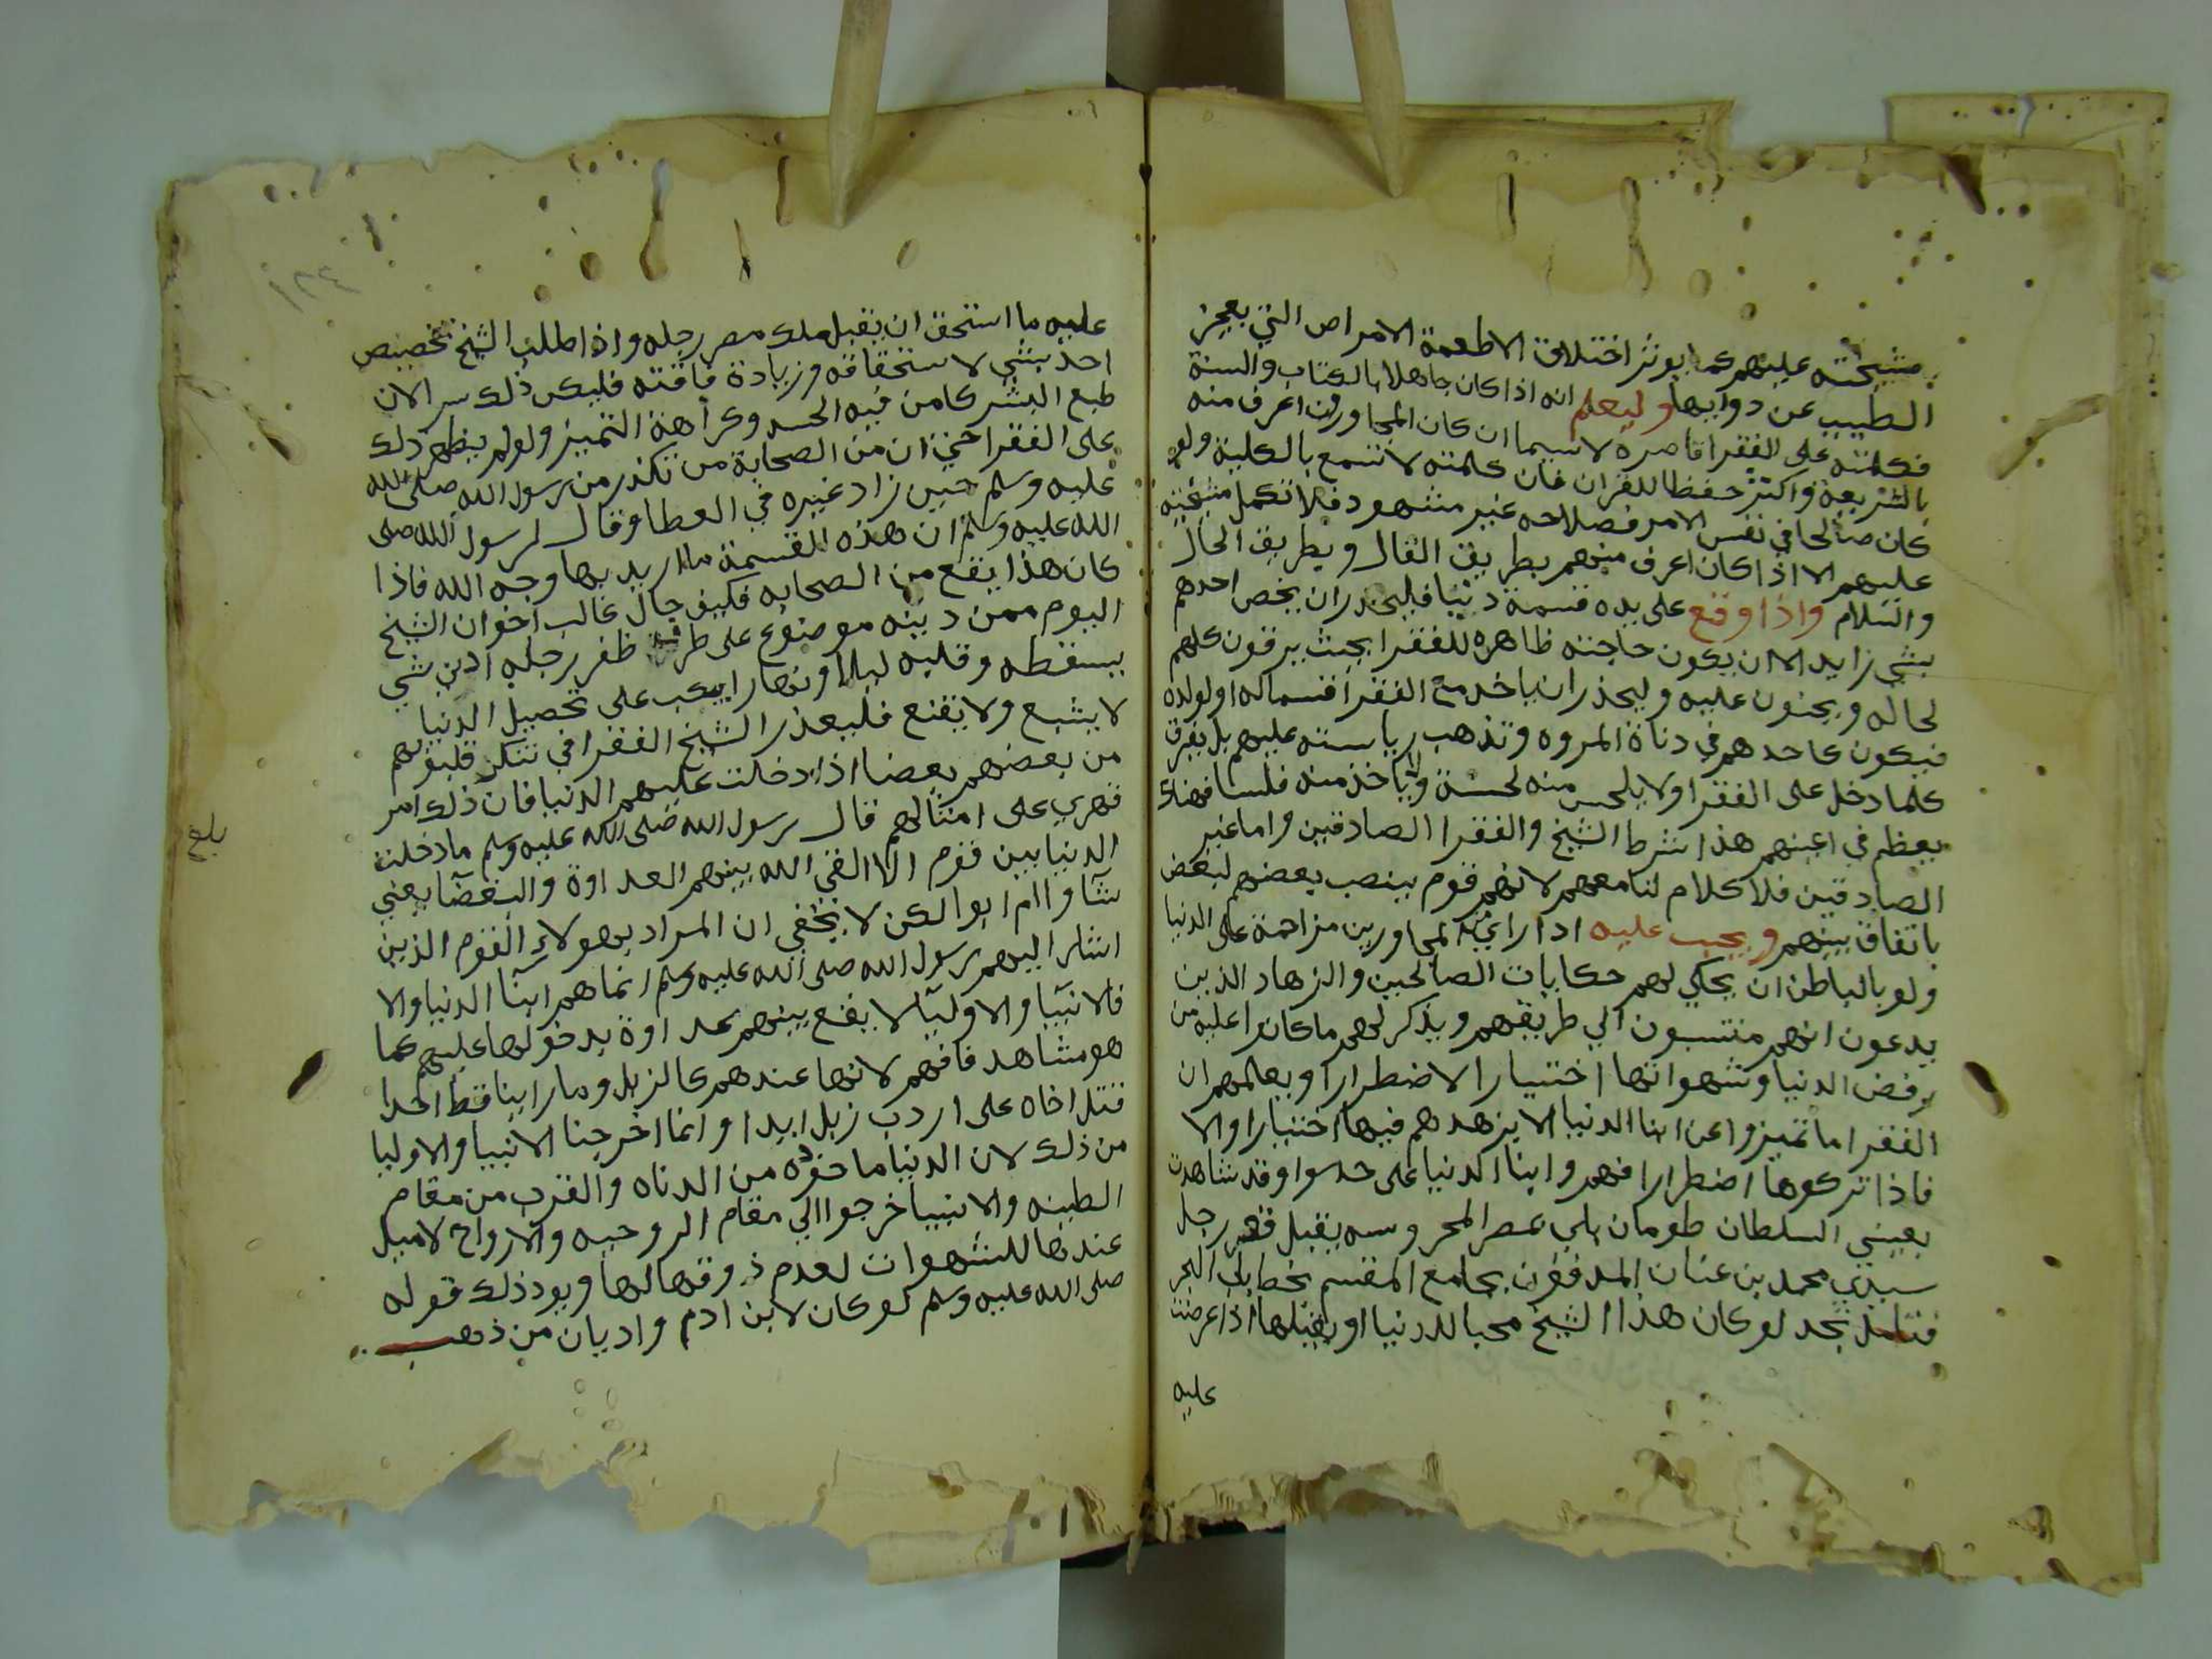 مشيخته عليهم كما يوثر اختلاف الاطعمة الامراض التي يعجز
الطبيب عن دوايها وليعلم انه اذا كان جاهلا بالكتاب والسنة
فكلمته على الفقرا قاصرة لاسيما ان كان المجاورون اعرف منه
بالشريعة واكثر حفظا للقران فان كلمته لا تسمع بالكلية ولو
كان صالحا في نفس الامر فصلاحه غير مشهود فلا تكمل مشيخته
عليهم الا اذا كان اعرف منهم بطريق القال وبطريق الحال
والسلام واذا وقع على يده قسمة دنيا فليحذر ان يخص احدهم
بشي زايد الا ان يكون حاجته ظاهره للفقرا بحيث يرقون كلهم
لحاله ويحنون عليه وليحذر ان ياخذ مع الفقرا قسما له او لولده
فيكون كاحدهم في دناة المروه وتذهب رياسته عليهم بل يفرق
كلما دخل على الفقرا ولا يلحس منه لحسة ولا ياخذ منه فلسا فهناك
يعظم في اعينهم هذا شرط الشيخ والفقرا الصادقين واما غير
الصادقين فلا كلام لنا معهم لانهم قوم ينصب بعضهم لبعض
باتفاق بينهم ويجب عليه اذا راي من المجاورين مزاحمة على الدنيا
ولو بالباطن ان يحكي لهم حكايات الصالحين والزهاد الذين
يدعون انهم منتسبون الي طريقهم ويذكر لهم ما كانوا عليه من
رفض الدنيا وشهواتها اختيارا لا اضطرارا ويعلمهم ان
الفقرا ما تميزوا عن ابنا الدنيا الا بزهدهم فيها اختيارا والا
فاذا تركوها اضطرارا فهم وابنا الدنيا على حد سوا وقد شاهدت
بعيني السلطان طومان باي بمصر المحروسه يقبل قصر رجل
سيدي محمد بن عنان المدفون بجامع المقسم بخط باب البحر
فتامل تجد لو كان هذا الشيخ محبا للدنيا او يقبلها اذا عرضت
عليه
عليه ما استحق ان يقبل ملك مصر رجله واذا طلب الشيخ تخصيص
احد بشي لاستحقاقه وزيادة فاقته فليكن ذلك سرا لان
طبع البشر كامن فيه الحسد وكراهة التميز ولو لم يظهر ذلك
على الفقرا حتي ان من الصحابة من تكدر من رسول الله صلى الله
عليه وسلم حين زاد غيره في العطا وقال لرسول الله صلى
الله عليه وسلم ان هذه القسمة ما اريد بها وجه الله فاذا
كان هذا يقع من الصحابه فكيف حال غالب اخوان الشيخ
اليوم ممن دينه موضوع على طرف ظفر رجله ادني شي
يسقطه وقلبه ليلا ونهارا يكب على تحصيل الدنيا
لا يشبع ولا يقنع فليعذر الشيخ الفقرا في تنكر قلوبهم
من بعضهم بعضا اذا دخلت عليهم الدنيا فان ذلك امر
قهري على امثالهم قال رسول الله صلى الله عليه وسلم ما دخلت
الدنيا بين قوم الا القي الله بينهم العداوة والبغضآ يعني
شآوا ام ابوا لكن لا يخفي ان المراد بهولاء القوم الذين
اشار اليهم رسول الله صلى الله عليه وسلم انما هم ابنآ الدنيا والا
فالانبيآ والاوليآ لا يقع بينهم عداوة بدخولها عليهم كما
هو مشاهد فافهم لانها عندهم كالزبل وما راينا قط احدا
قتل اخاه على اردب زبل ابدا وانما اخرجنا الانبيا والاوليا
من ذلك لان الدنيا ماخوذه من الدناه والقرب من مقام
الطينه والانبيا خرجوا الي مقام الروحيه والارواح لا ميل
عندها للشهوات لعدم ذوقها لها ويود ذلك قوله
صلى الله عليه وسلم لو كان لابن ادم واديان من ذهب
بلغ